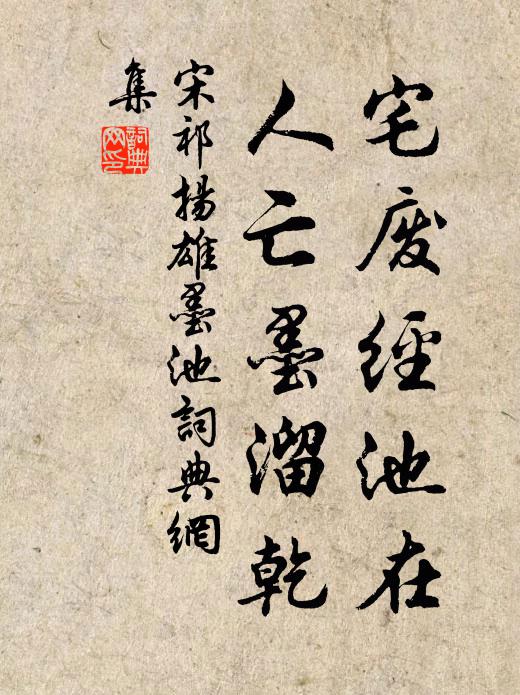 宅废經池在
人亡墨溜乾
宋祁揚雄墨池詞典網
集
詞典網印